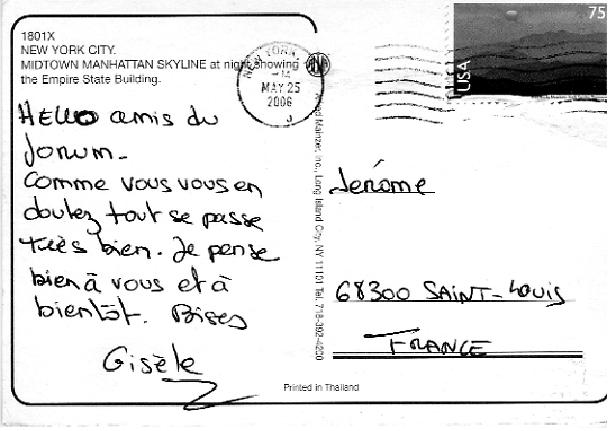 1801X
NEW YORK CITY.
MIDTOWN MANHATTAN SKYLINE at night showing
the Empire State Building.
NEW YORK,
MAY 25
2006
J
75
USA
HELLO amis du
forum.
Comme vous vous en
doutez tout se passe
très bien. Je pense
bien à vous et à
bientôt. Bises
Gisèle
Alfred Mainzer, Inc., Long Island City, NY 11101 Tel. 718-392-4200
Jérôme
68300 SAINT-LOUIS
FRANCE
Printed in Thailand